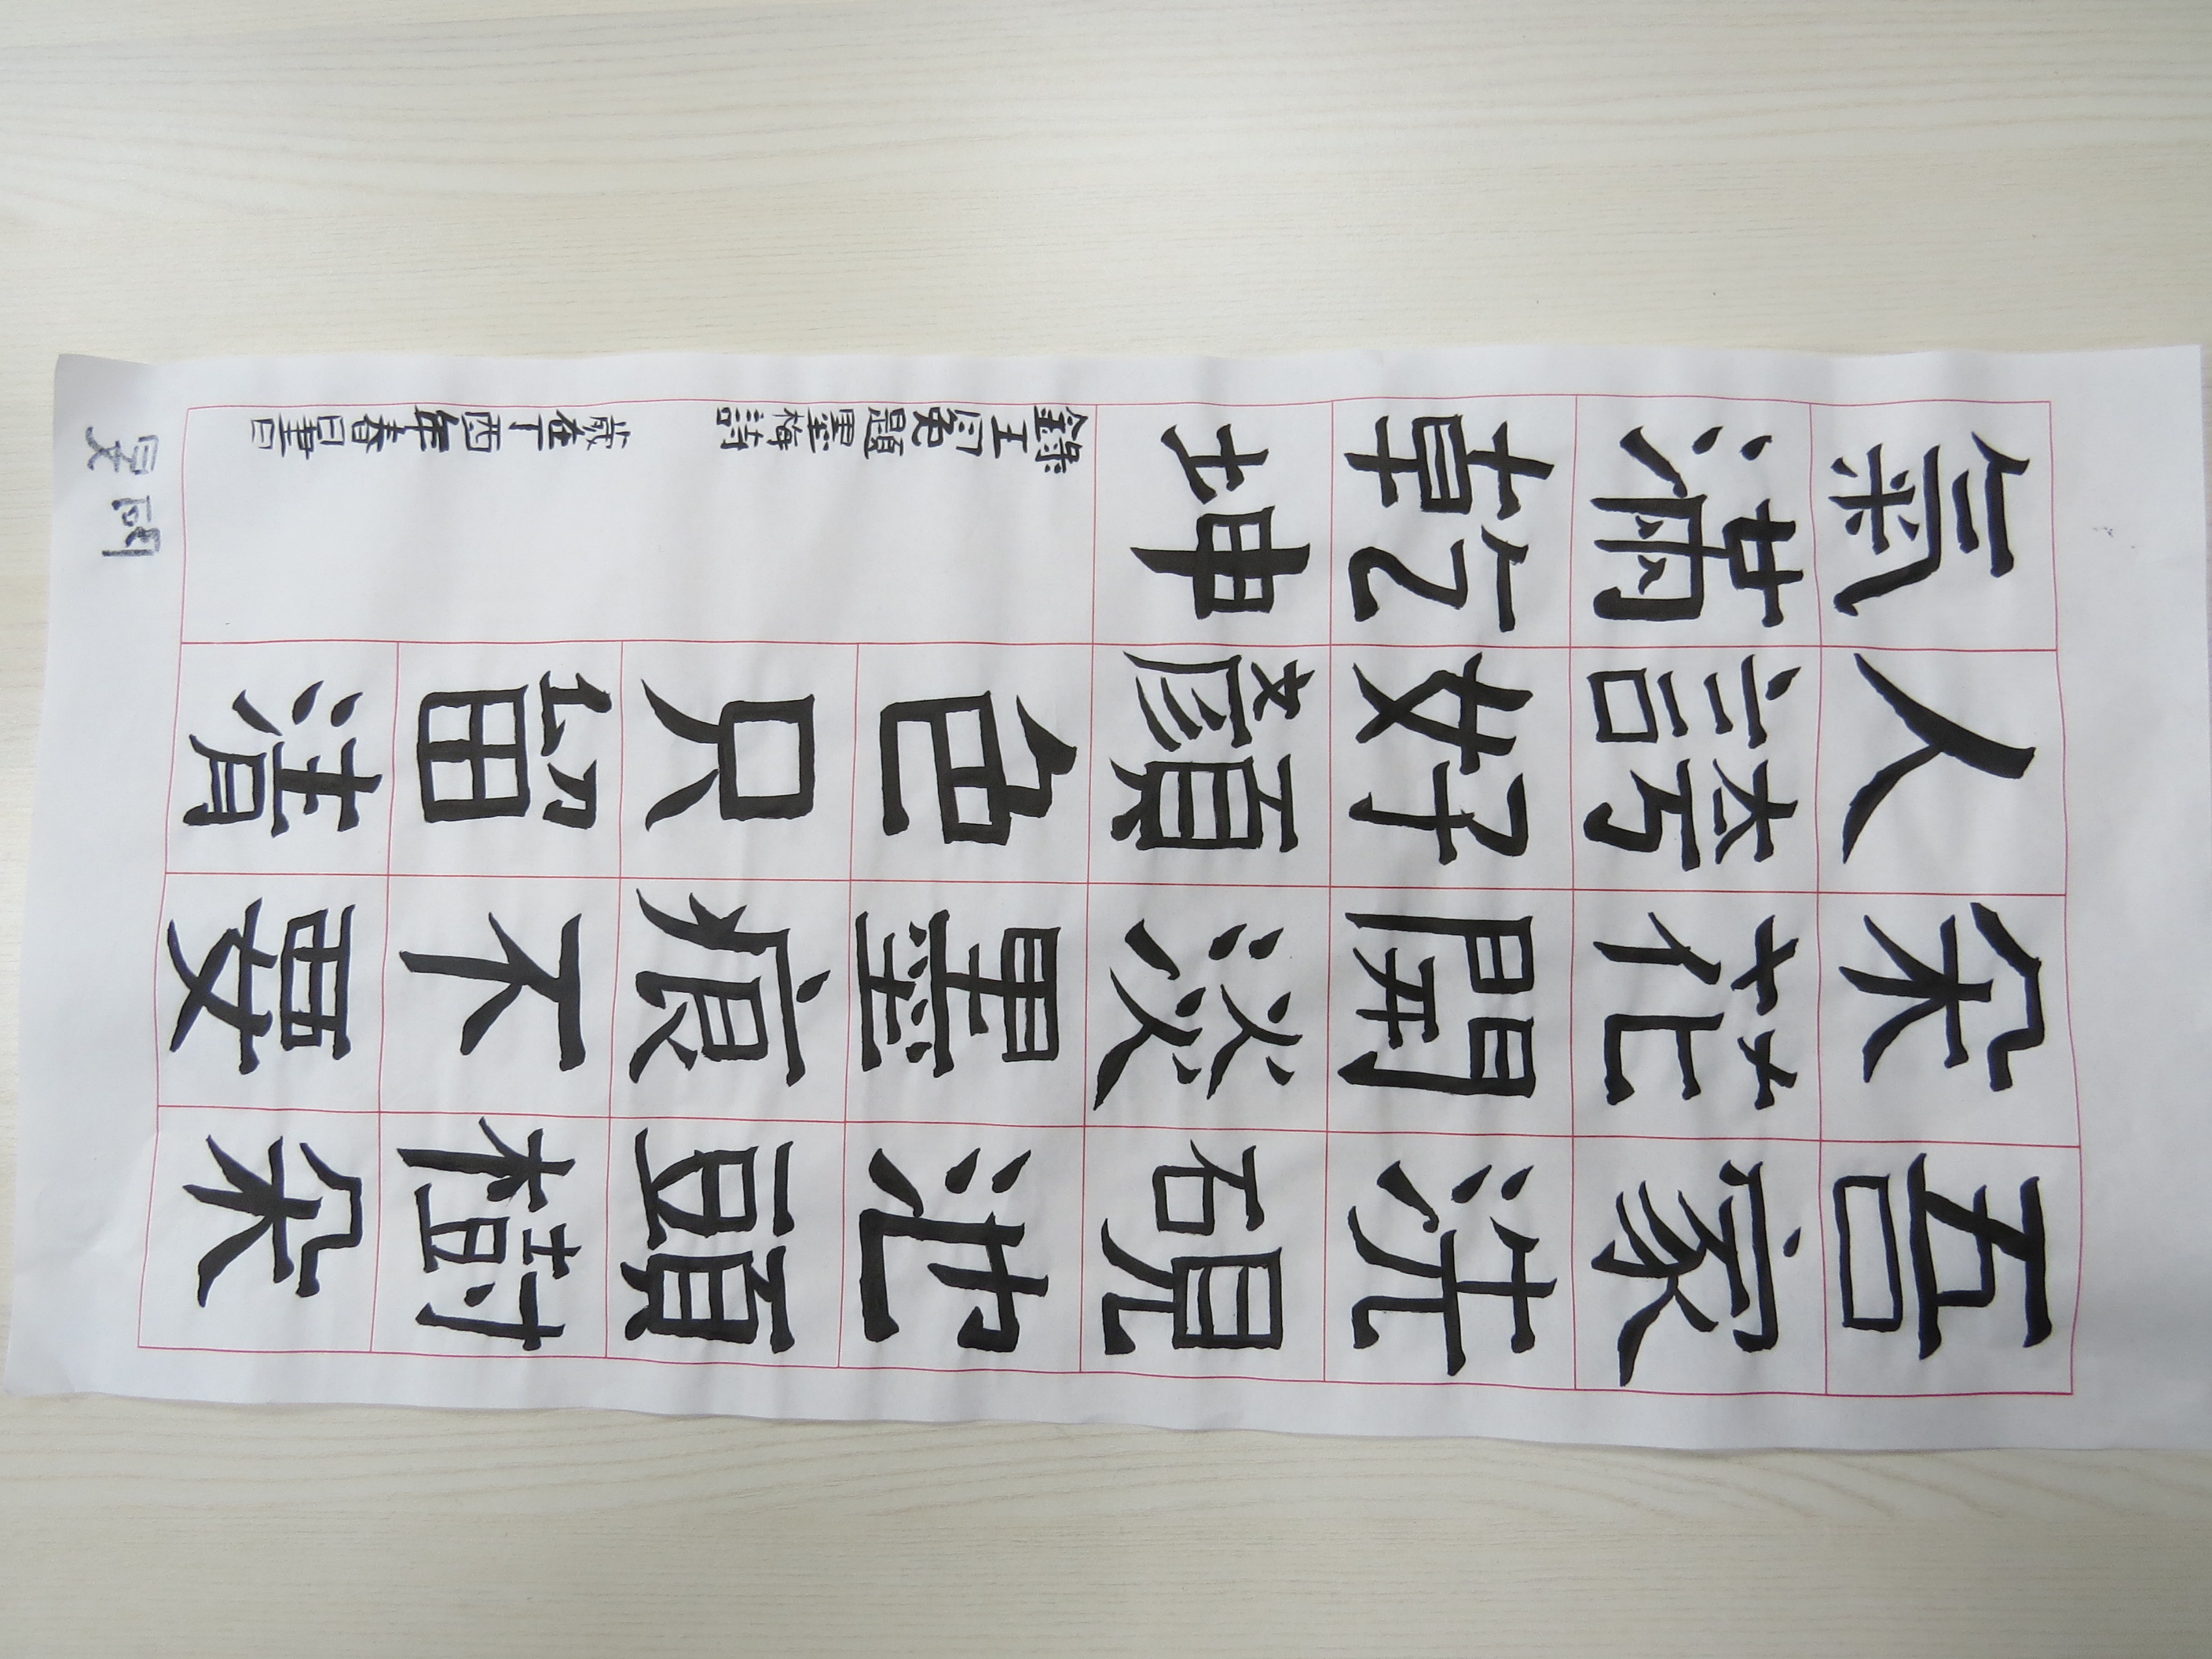 吾家洗硯池頭樹朵
朵花開淡墨痕不要
人誇好顏色只留清
氣滿乾坤
錄王冕題墨梅詩
歲在丁酉年春日書